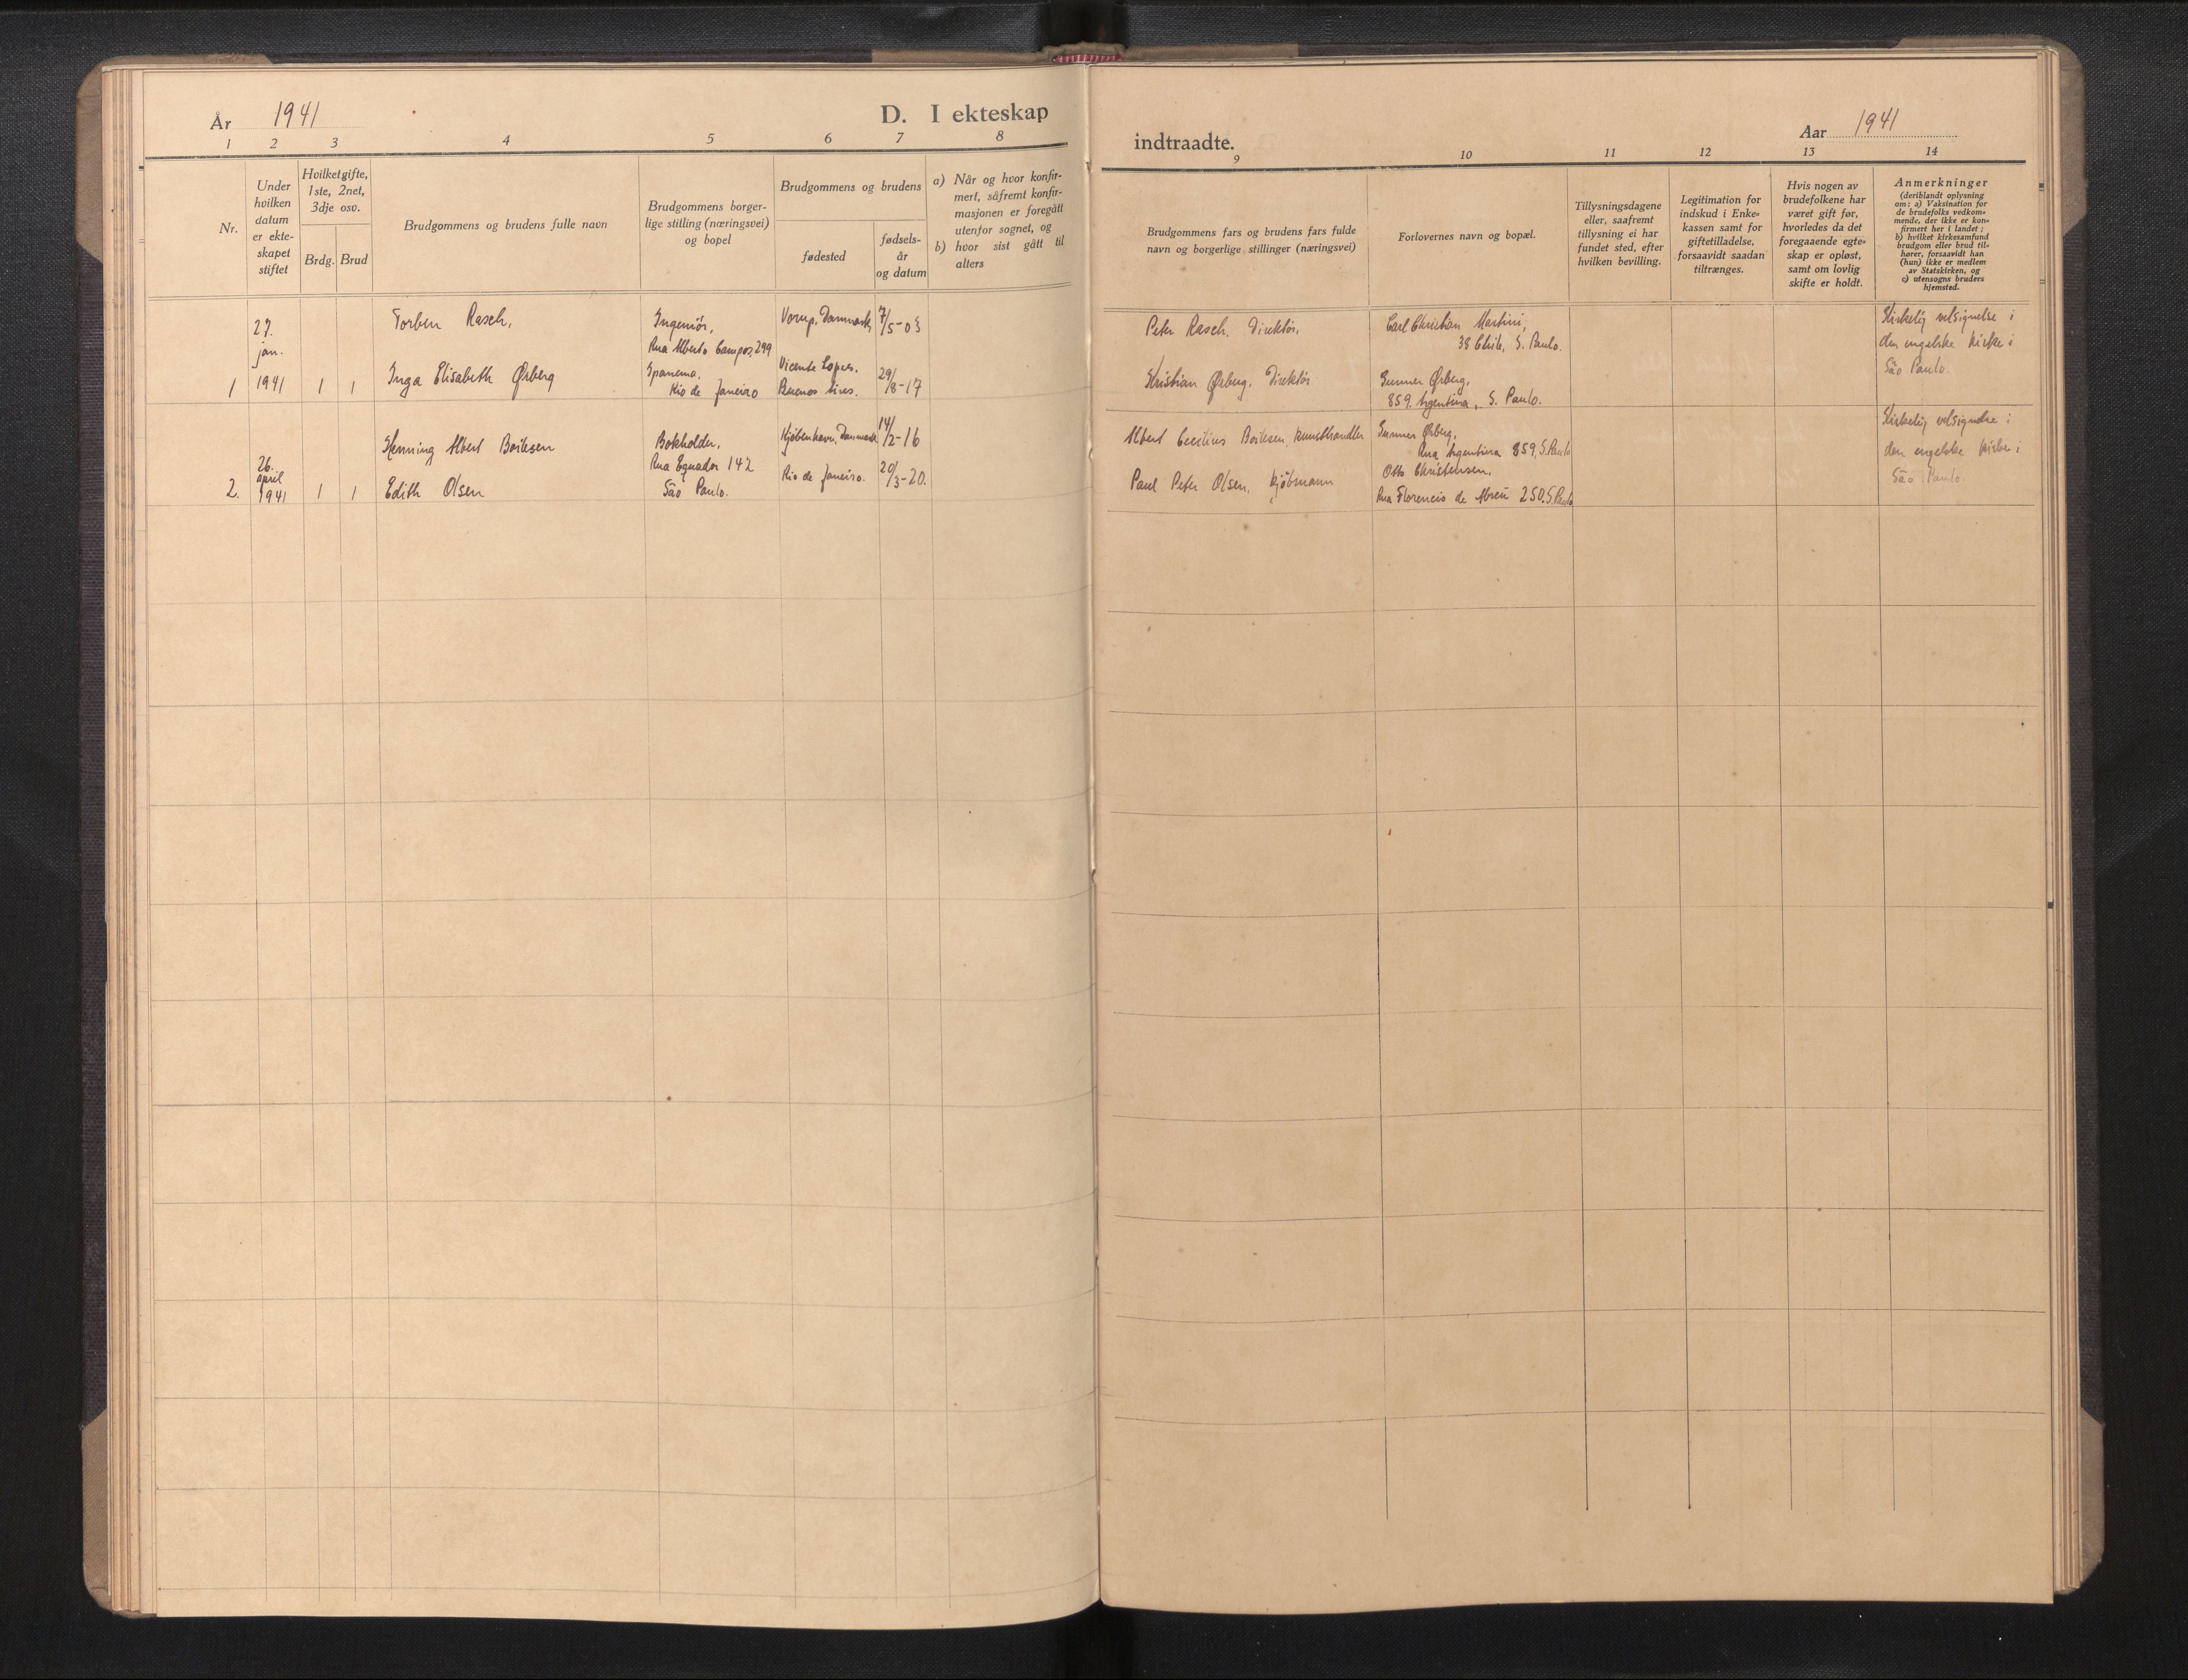 År 1941
D. I ekteskap
1 2 3 4 5 6 7 8
Nr.
Under
hvilken
datum
er ekte-
skapet
stiftet
Hvilket gifte,
1ste, 2net,
3dje osv.
Brdg. Brud
Brudgommens og brudens fulle navn
Brudgommens borger-
lige stilling (næringsvei)
og bopel
Brudgommens og brudens
fødested
fødsels-
år
og datum
a) Når og hvor konfir-
mert, såfremt konfir-
masjonen er foregått
utenfor sognet, og
b) hvor sist gått til
alters
1
27.
jan.
1941
1 1
Torben Rasch,
Inga Elisabeth Ørberg
Ingeniör,
Rua Alberto Campos, 299
Ipanema.
Rio de Janeiro
Vorup, Danmark
Vicente Lopes.
Buenos Aires.
7/5-03
29/8-17
2.
26.
april
1941
1 1
Henning Albert Boilesen
Edith Olsen
Bokholder,
Rua Equador 142
São Paulo.
Kjöbenhavn, Danmark
Rio de Janeiro.
14/2-16
20/3-20.
indtraadte.
Aar 1941
9 10 11 12 13 14
Brudgommens fars og brudens fars fulde
navn og borgerlige stillinger (næringsvei)
Forlovernes navn og bopæl.
Tillysningsdagene
eller, saafremt
tillysning ei har
fundet sted, efter
hvilken bevilling.
Legitimation for
indskud i Enke-
kassen samt for
giftetilladelse,
forsaavidt saadan
tiltrænges.
Hvis nogen av
brudefolkene har
været gift før,
hvorledes da det
foregaaende egte-
skap er opløst,
samt om lovlig
skifte er holdt.
Anmerkninger
(deriblandt oplysning
om: a) Vaksination for
de brudefolks vedkom-
mende, der ikke er kon-
firmert her i landet;
b) hvilket kirkesamfund
brudgom eller brud til-
hører, forsaavidt han
(hun) ikke er medlem
av Statskirken, og
c) utensogns bruders
hjemsted.
Peter Rasch, Direktör.
Kristian Ørberg, Direktör
Carl Christian Martini,
38 Chile, S. Paulo.
Gunner Ørberg,
859. Argentina, S. Paulo.
Kirkelig velsignelse i
den engelske kirke i
São Paulo.
Albert Boilesen, kunsthandler
Paul Peter Olsen, kjöbmann
Gunner Ørberg,
Rua Argentina 859, S. Paulo
Otto Christensen,
Rua Florencio de Abreu 250. S. Paulo
Kirkelig velsignelse i
den engelske kirke i
São Paulo.